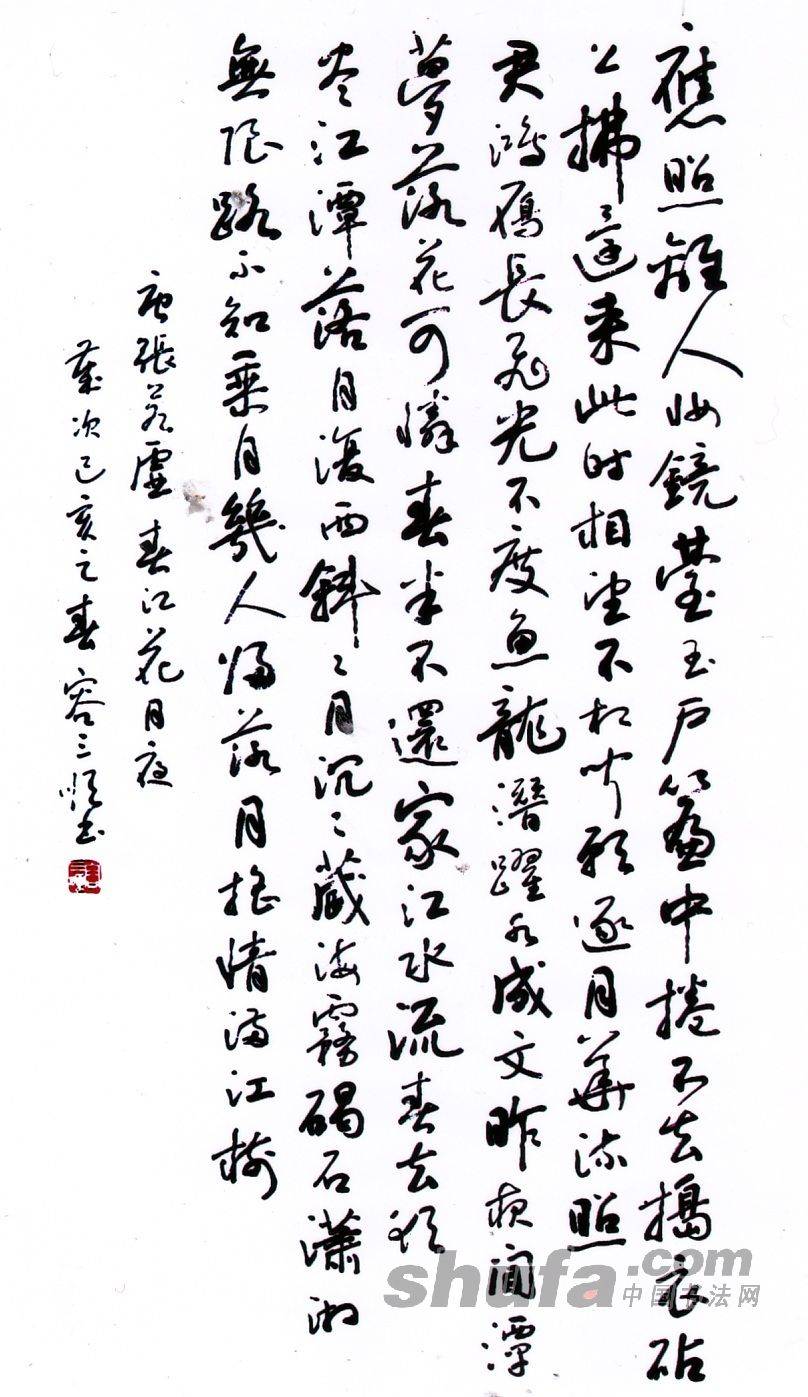 應照離人妝鏡臺玉戶簾中捲不去擣衣砧
上拂還來此時相望不相聞願逐月華流照
君鴻雁長飛光不度魚龍潛躍水成文昨夜閒潭
夢落花可憐春半不還家江水流春去欲
盡江潭落月復西斜〻月沉〻藏海霧碣石瀟湘
無限路不知乘月幾人歸落月搖情滿江樹
唐張若虛春江花月夜
歲次己亥之春容三書
shufa.com
中国书法网